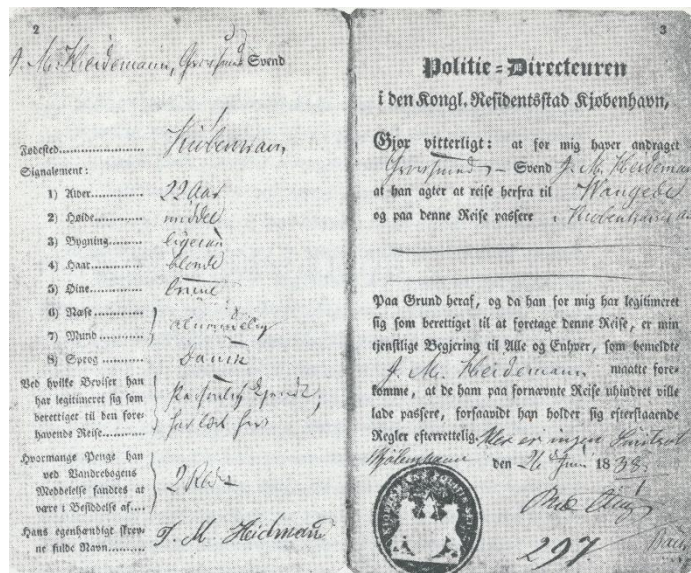 2
J. M. Heidemann, Grovsmed Svend
Fødested........... Kiöbenhavn
Signalement:
1) Alder......... 22 Aar
2) Høide......... middel
3) Bygning.........
4) Haar......... blonde
5) Øine......... brune
6) Næse......... almindelig
7) Mund.........
8) Sprog......... Dansk
Ved hvilke Beviser han
har legitimeret sig som
berettiget til den fore-
havende Reise...........
Hvormange Penge han
ved Vandrebogens
Meddelelse fandtes at
være i Besiddelse af....
Hans egenhændigt skrev-
ne fulde Navn......... J. M. Heidman
3
Politie=Directeuren
i den Kongl. Residentsstad Kjøbenhavn,
Gjør vitterligt: at for mig haver andraget
Grovsmed - Svend J. M. Heideman
at han agter at reise herfra til
og paa denne Reise passere
Paa Grund heraf, og da han for mig har legitimeret
sig som berettiget til at foretage denne Reise, er min
tjenstlige Begjering til Alle og Enhver, som bemeldte
J. M. Heidemann maatte fore-
komme, at de ham paa fornævnte Reise uhindret ville
lade passere, forsaavidt han holder sig efterstaaende
Regler efterrettelig.
Kjøbenhavn den 26 Juni 1838
297.